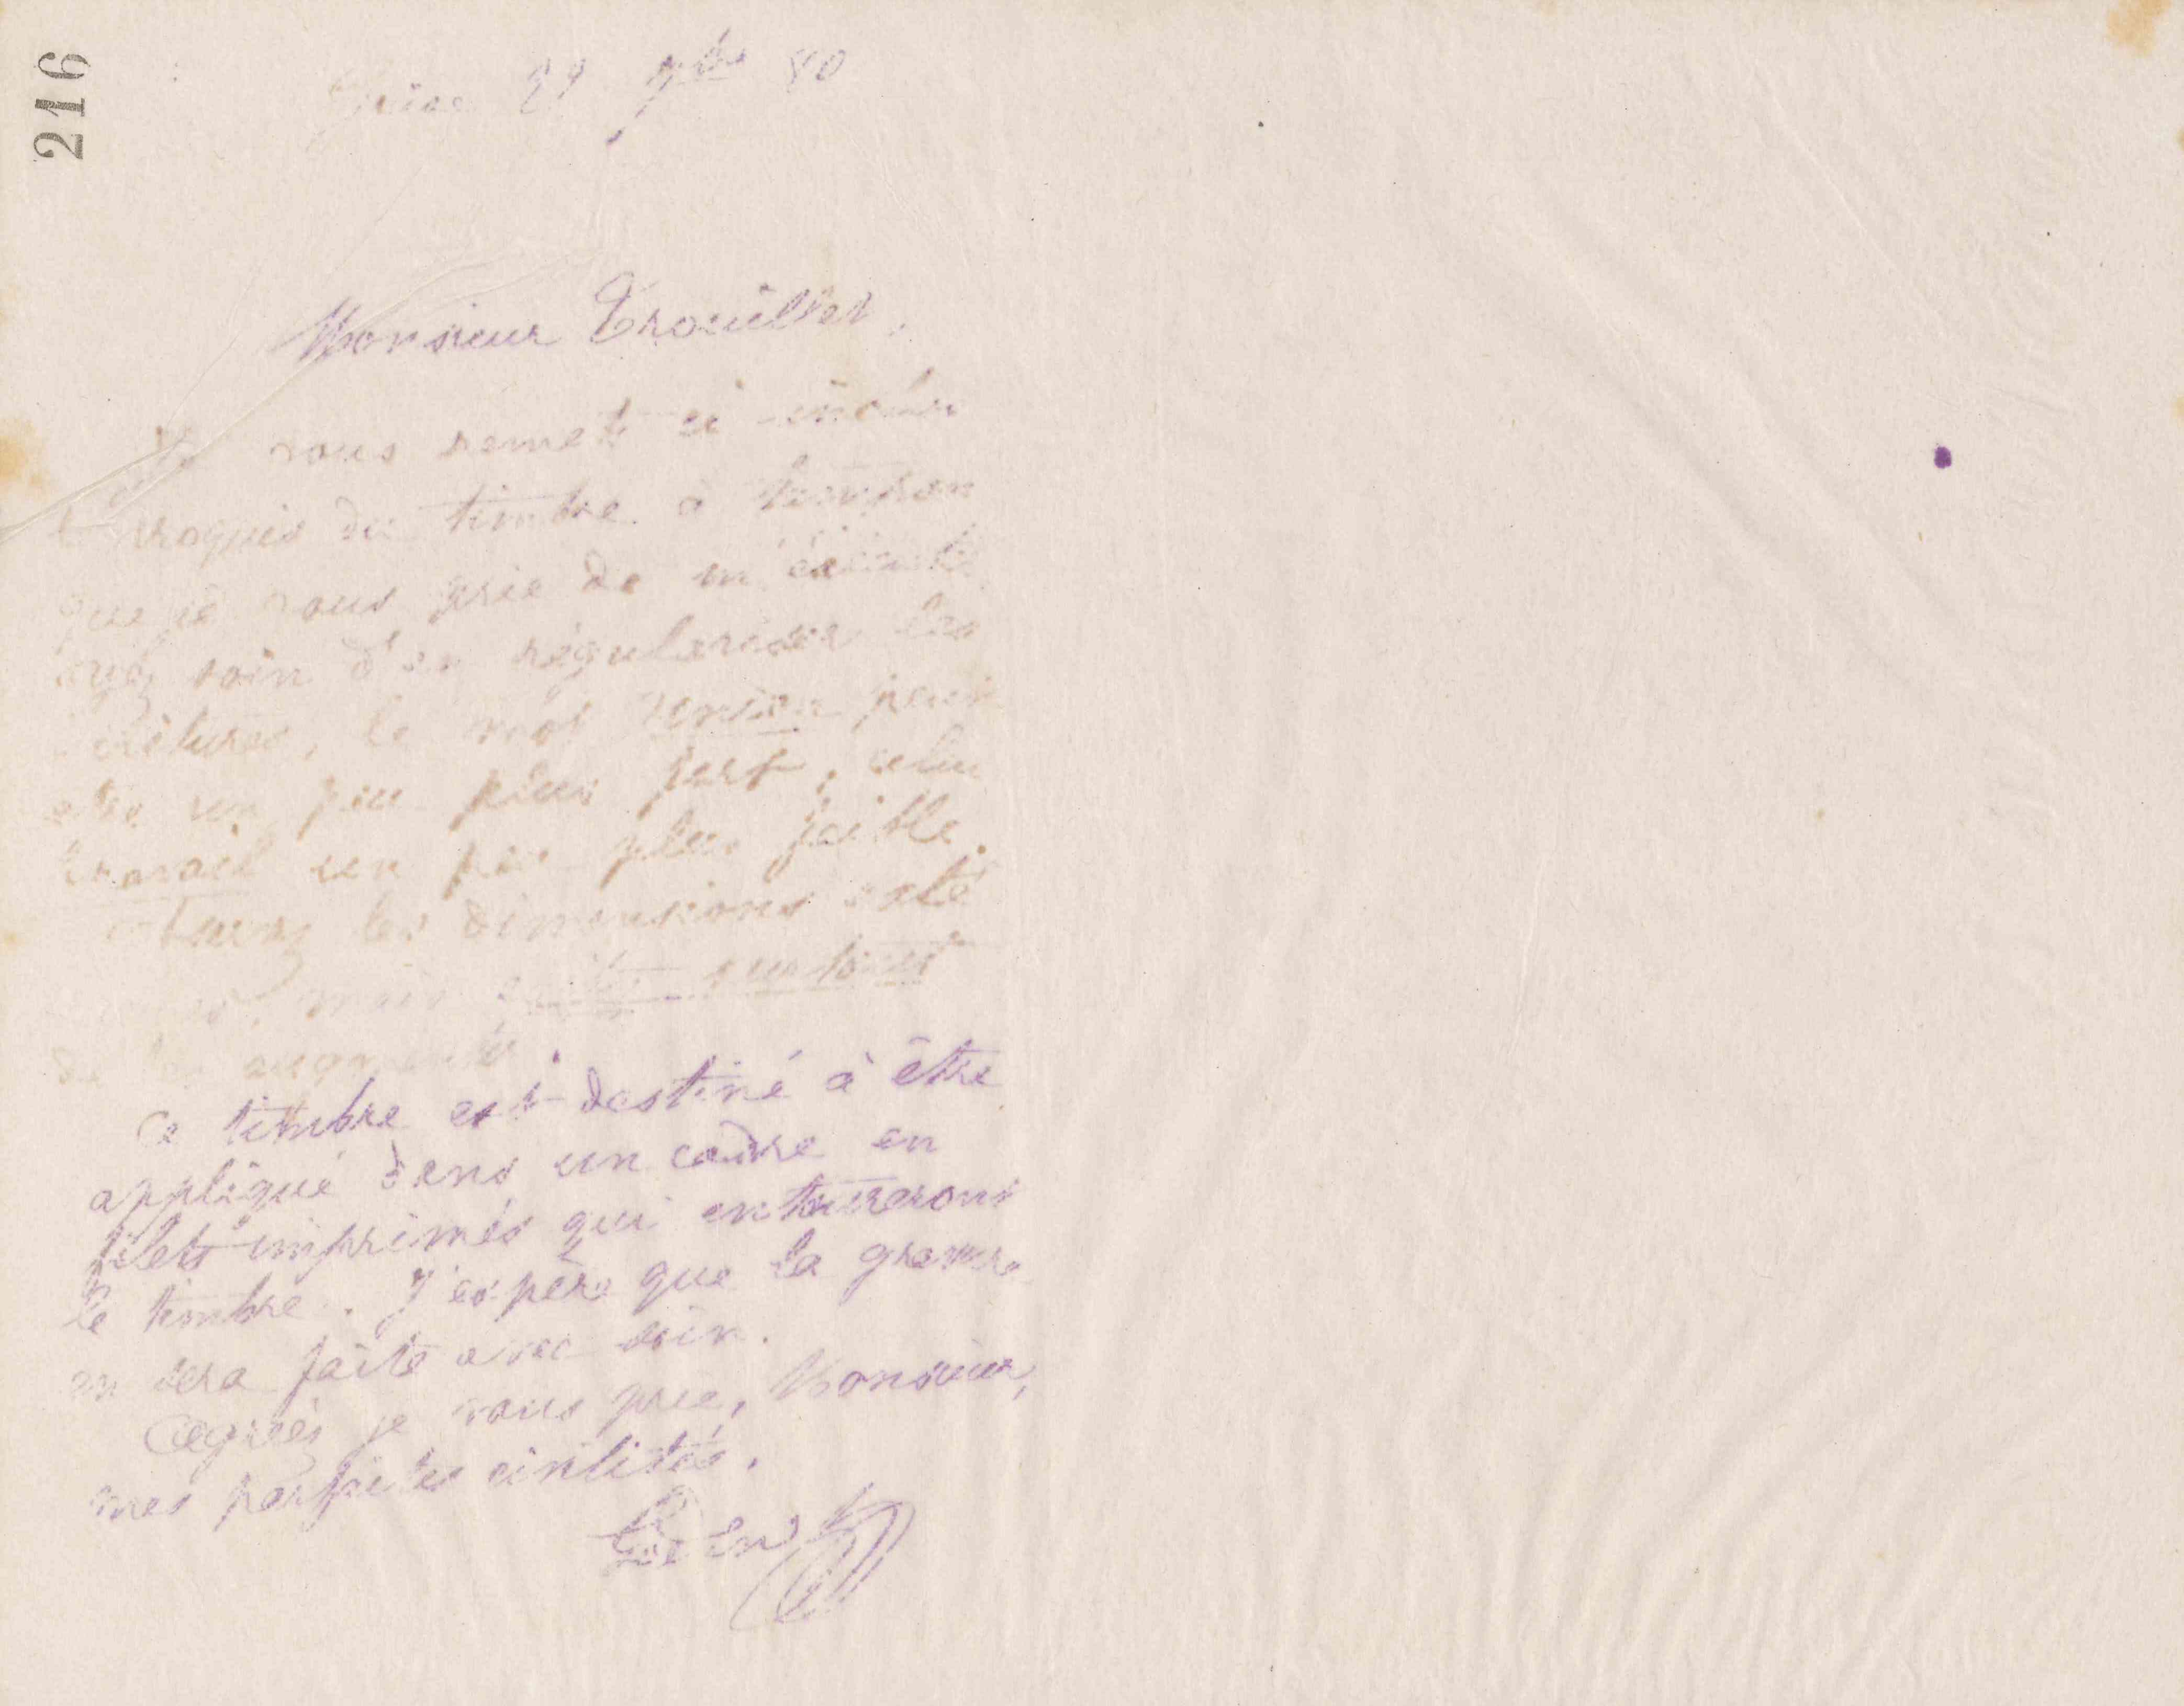 216
Guise 29 9bre 80
Monsieur Trouillet,
Je vous remets ci-inclus
le croquis du timbre à tampon
que je vous prie de m'exécuter
ayez soin d'en régulariser les
écritures, le mot union peut
être un peu plus fort, celui
travail un peu plus faible.
les dimensions coté
mais évitez surtout
de les augmenter
Ce timbre est destiné à être
appliqué dans un cadre en
filets imprimés qui entoureront
le timbre. J'espère que la gravure
en sera faite avec soin.
Agréés je vous prie, Monsieur,
mes parfaites civilités.
Godin